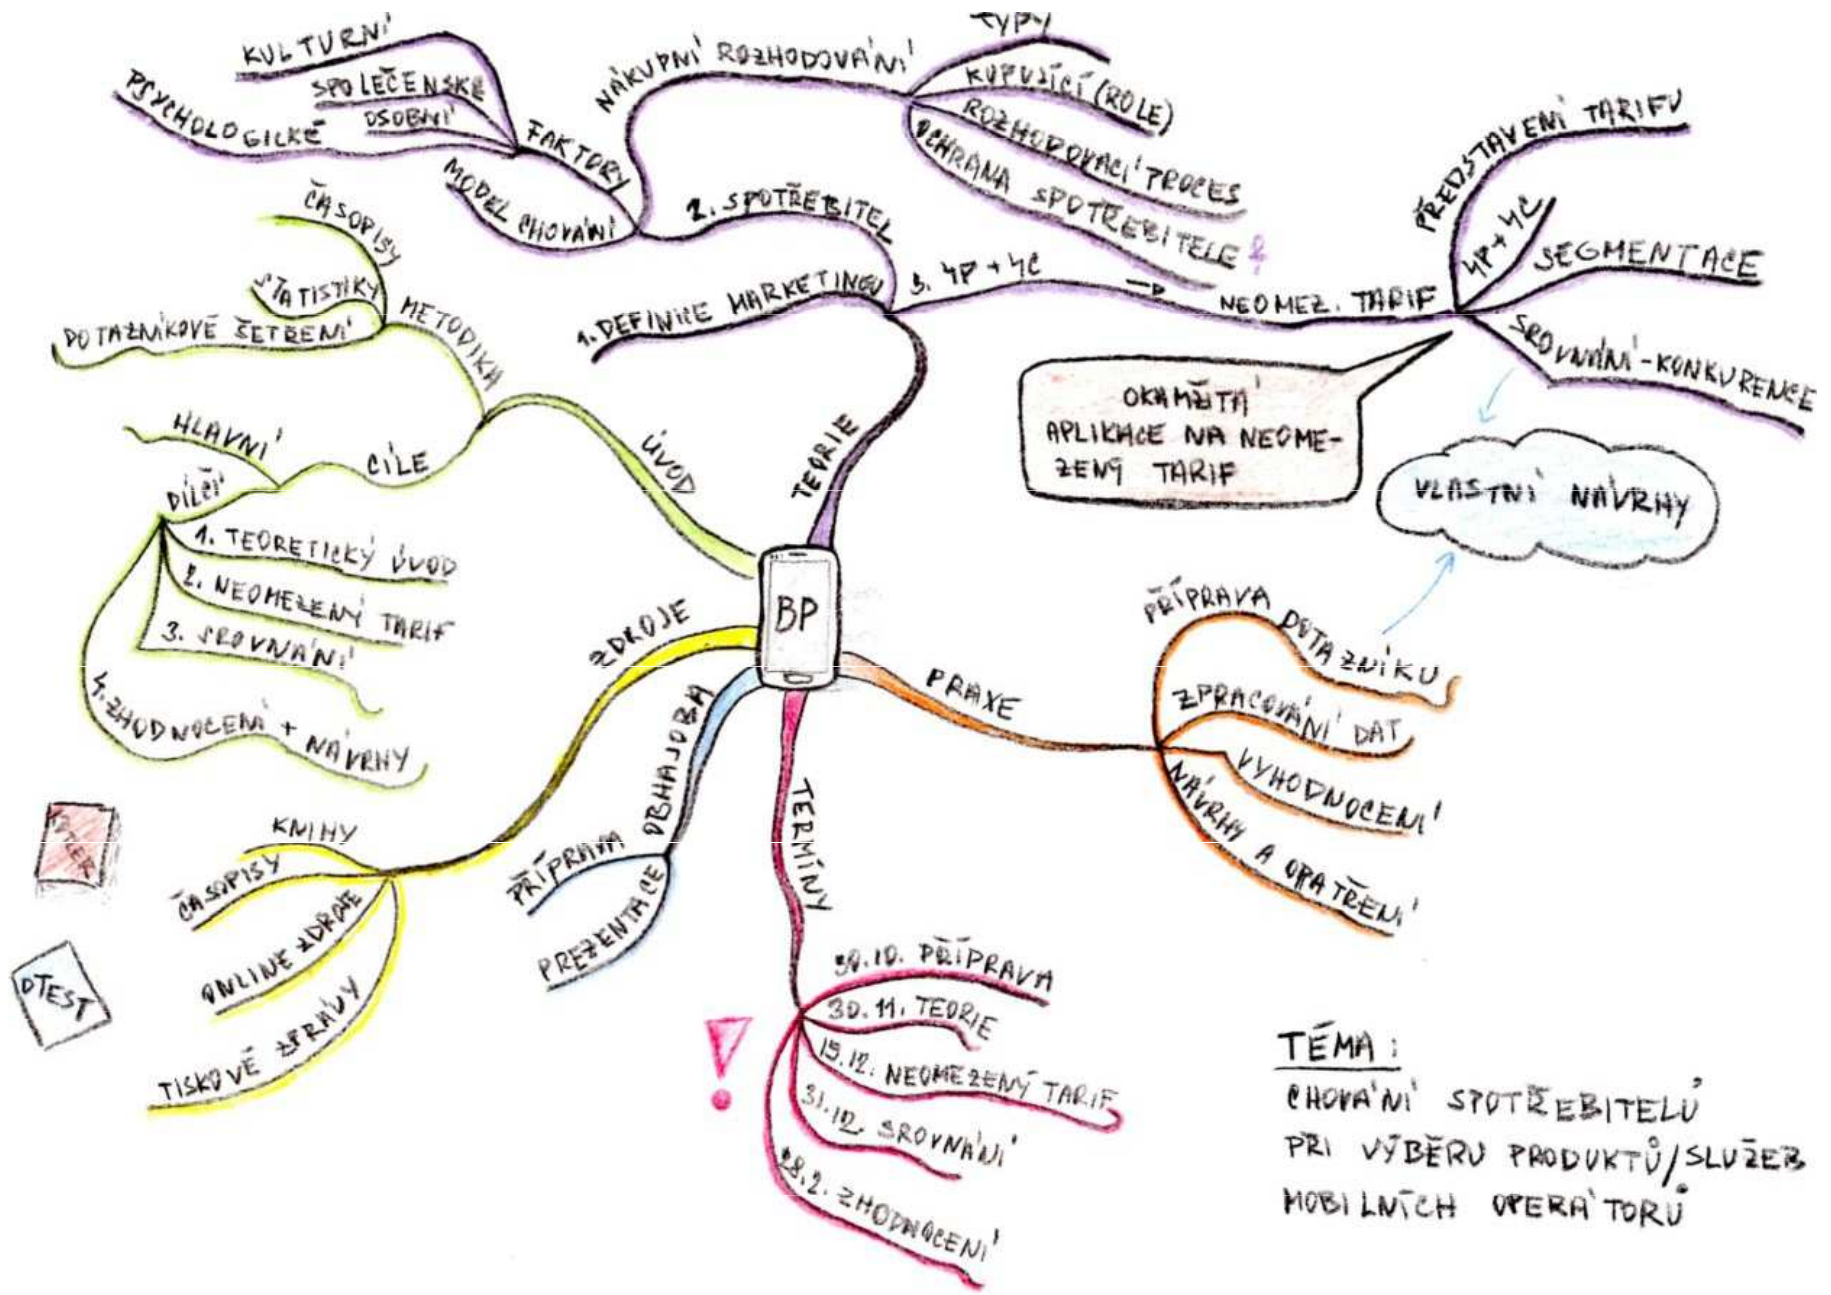 TYPY
KULTURNÍ
SPOLEČENSKÉ
OSOBNÍ
PSYCHOLOGICKÉ
FAKTORY
MODEL CHOVÁNÍ
NÁKUPNÍ ROZHODOVÁNÍ
KUPUJÍCÍ (ROLE)
ROZHODOVACÍ PROCES
OCHRANA SPOTŘEBITELE
2. SPOTŘEBITEL
1. DEFINICE MARKETINGU
3. 4P + 4C
NEOMEZ. TARIF
PŘEDSTAVENÍ TARIFU
4P + 4C
SEGMENTACE
SROVNÁNÍ - KONKURENCE
OKAMŽITÁ
APLIKACE NA NEOME-
ZENÝ TARIF
VLASTNÍ NÁVRHY
TEORIE
ČASOPISY
STATISTIKY
DOTAZNÍKOVÉ ŠETŘENÍ
METODIKA
ÚVOD
CÍLE
HLAVNÍ
DÍLČÍ
1. TEORETICKÝ ÚVOD
2. NEOMEZENÝ TARIF
3. SROVNÁNÍ
4. ZHODNOCENÍ + NÁVRHY
BP
ZDROJE
KNIHY
ČASOPISY
ONLINE ZDROJE
TISKOVÉ ZPRÁVY
KOTLER
DTEST
OBHAJOBA
PŘÍPRAVA
PREZENTACE
TERMÍNY
30.10. PŘÍPRAVA
30.11. TEORIE
15.12. NEOMEZENÝ TARIF
31.12. SROVNÁNÍ
28.2. ZHODNOCENÍ
PRAXE
PŘÍPRAVA DOTAZNÍKU
ZPRACOVÁNÍ DAT
VYHODNOCENÍ
NÁVRHY A OPATŘENÍ
TÉMA:
CHOVÁNÍ SPOTŘEBITELŮ
PŘI VÝBĚRU PRODUKTŮ/SLUŽEB
MOBILNÍCH OPERÁTORŮ